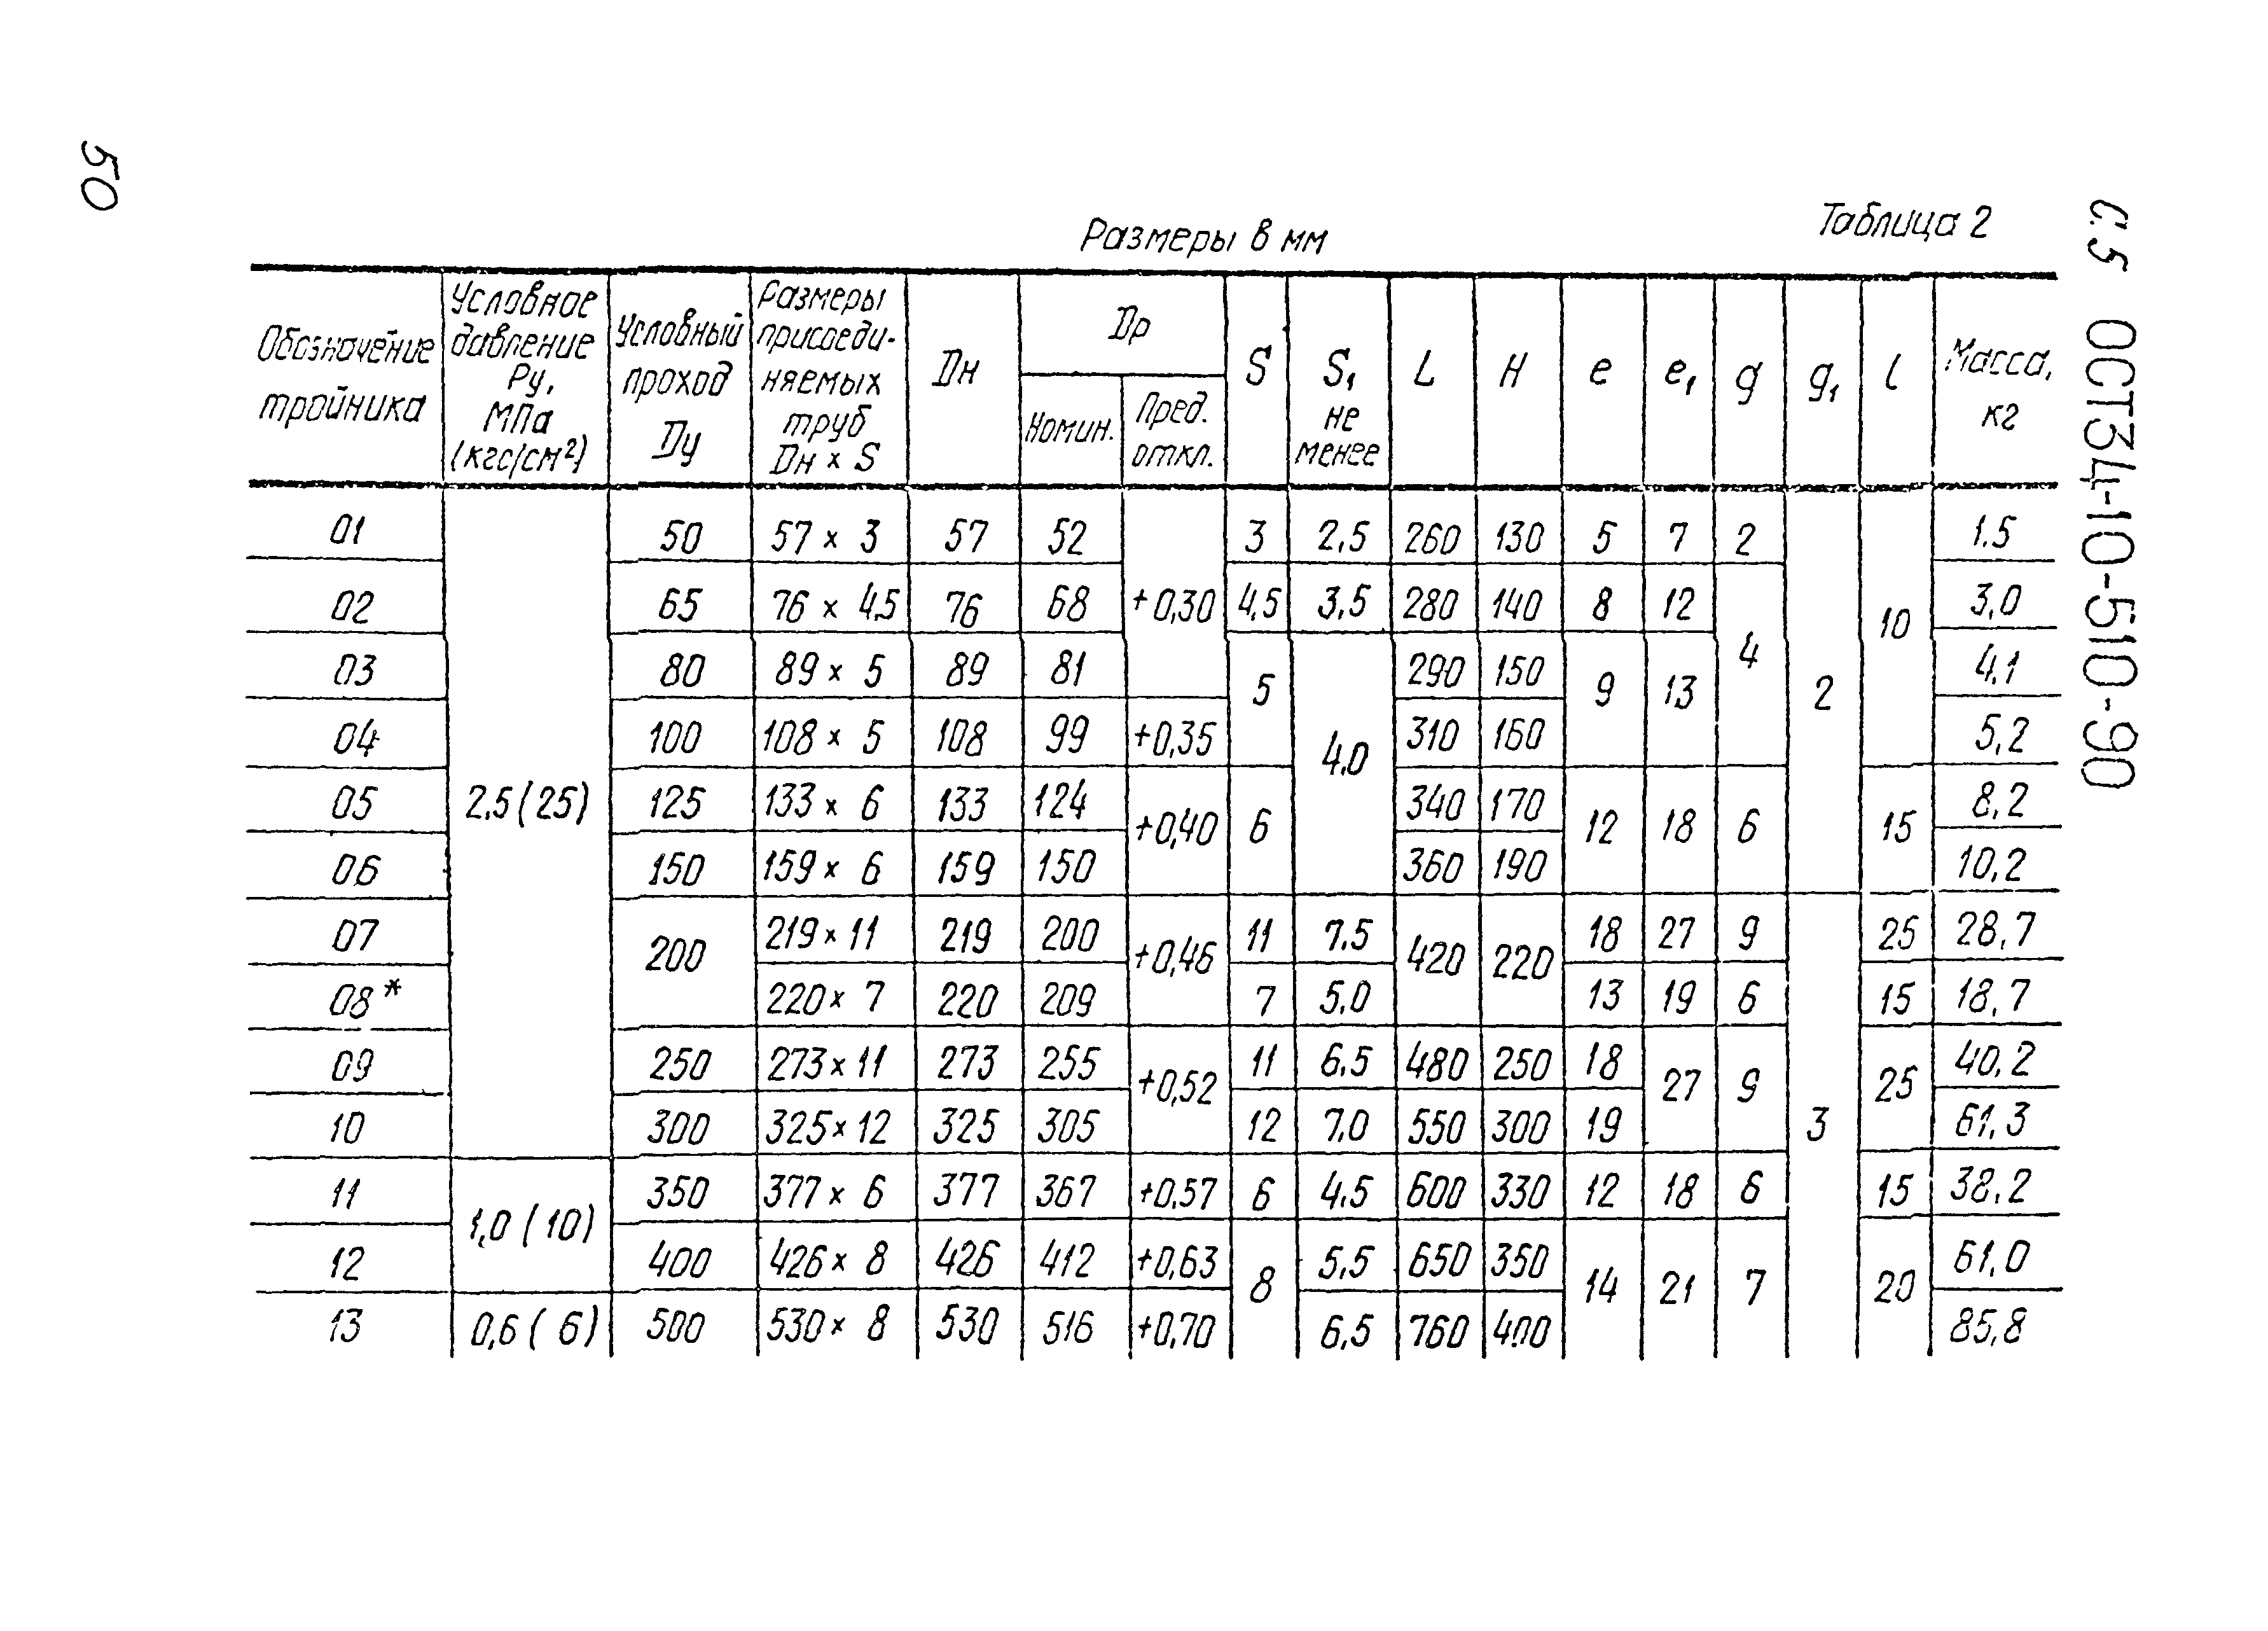 50
Размеры в мм
Таблица 2
С.5 ОСТ34-10-510-90
Обозначение тройника | Условное давление Ру, МПа (кгс/см²) | Условный проход Dу | Размеры присоеди-няемых труб Dн × S | Dн | Dр Номин. | Dр Пред. откл. | S | S₁ не менее | L | H | e | e₁ | g | g₁ | l | Масса, кг
01 | 2,5 (25) | 50 | 57 × 3 | 57 | 52 | +0,30 | 3 | 2,5 | 260 | 130 | 5 | 7 | 2 | 2 | 10 | 1.5
02 | 65 | 76 × 4,5 | 76 | 68 | 4,5 | 3,5 | 280 | 140 | 8 | 12 | 4 | 3,0
03 | 80 | 89 × 5 | 89 | 81 | 5 | 4,0 | 290 | 150 | 9 | 13 | 4,1
04 | 100 | 108 × 5 | 108 | 99 | +0,35 | 310 | 160 | 5,2
05 | 125 | 133 × 6 | 133 | 124 | +0,40 | 6 | 340 | 170 | 12 | 18 | 6 | 15 | 8,2
06 | 150 | 159 × 6 | 159 | 150 | 360 | 190 | 10,2
07 | 200 | 219 × 11 | 219 | 200 | +0,46 | 11 | 7.5 | 420 | 220 | 18 | 27 | 9 | 3 | 25 | 28,7
08* | 220 × 7 | 220 | 209 | 7 | 5,0 | 13 | 19 | 6 | 15 | 18,7
09 | 250 | 273 × 11 | 273 | 255 | +0,52 | 11 | 6,5 | 480 | 250 | 18 | 27 | 9 | 25 | 40,2
10 | 300 | 325 × 12 | 325 | 305 | 12 | 7,0 | 550 | 300 | 19 | 61,3
11 | 1,0 (10) | 350 | 377 × 6 | 377 | 367 | +0,57 | 6 | 4,5 | 600 | 330 | 12 | 18 | 6 | 15 | 38,2
12 | 400 | 426 × 8 | 426 | 412 | +0,63 | 8 | 5,5 | 650 | 350 | 14 | 21 | 7 | 20 | 61,0
13 | 0,6 (6) | 500 | 530 × 8 | 530 | 516 | +0,70 | 6,5 | 760 | 400 | 85,8